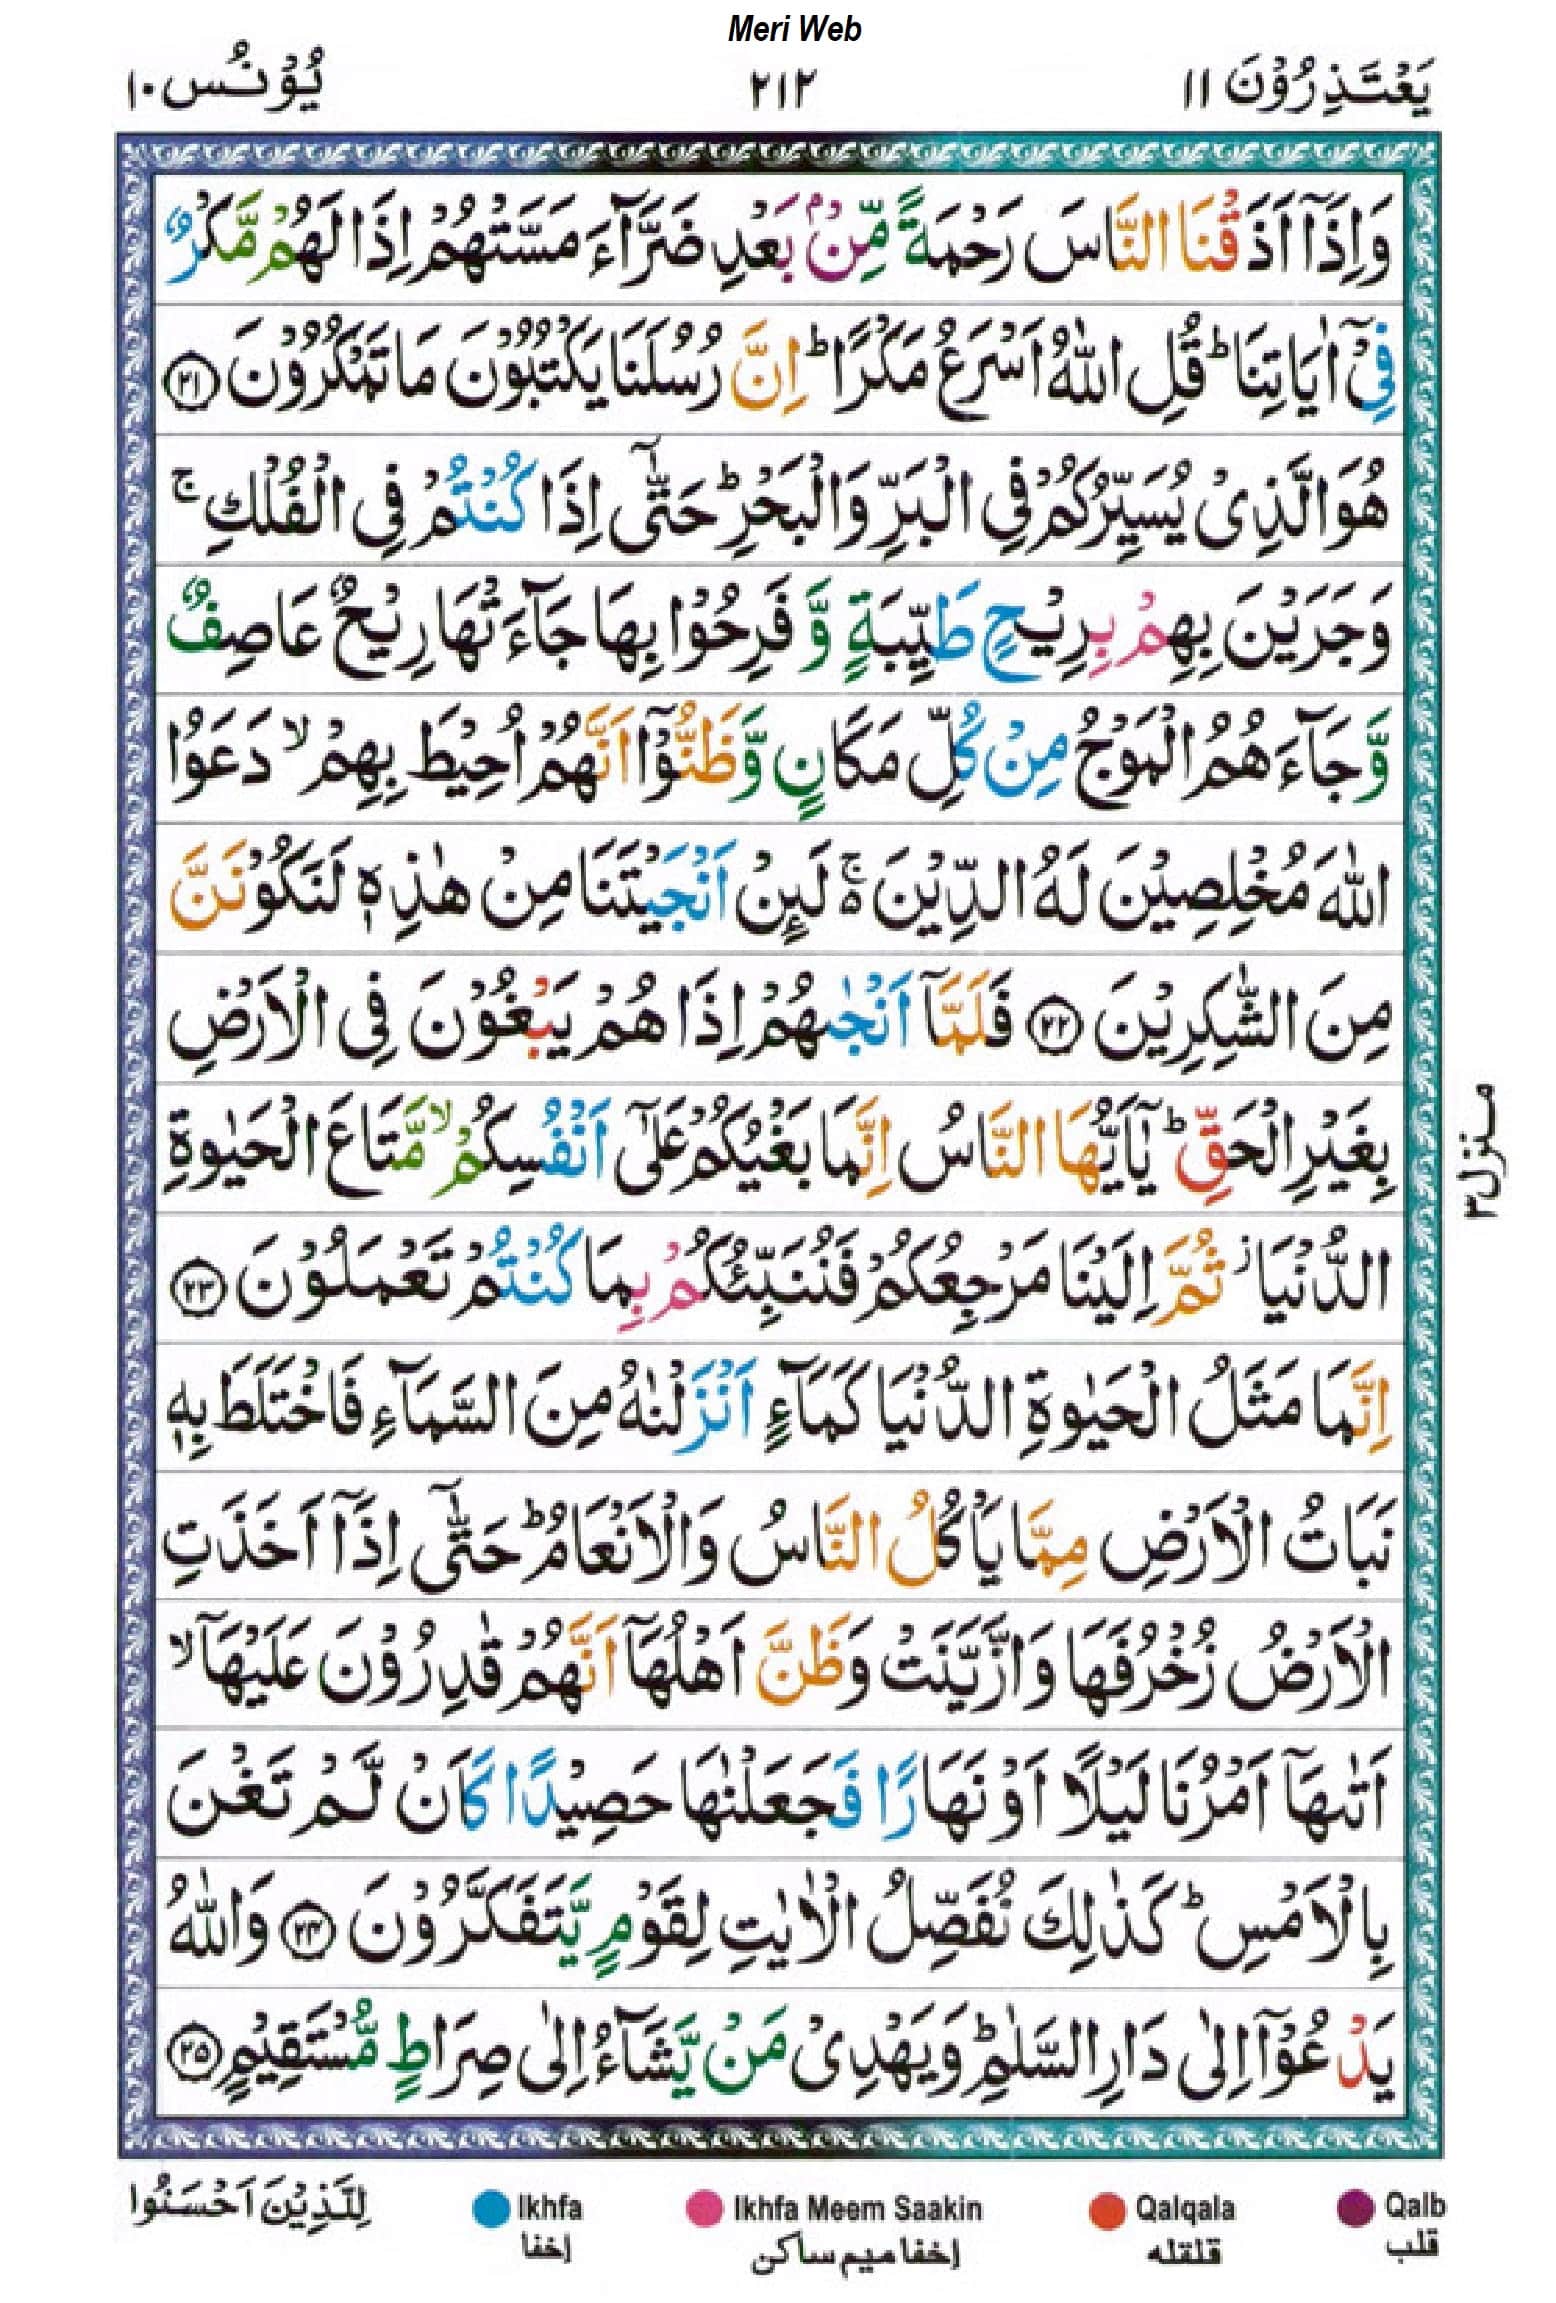 Meri Web
يَعْتَذِرُوْنَ ١١ ٢١٢ يُوْنُس ١٠
وَاِذَآ اَذَقْنَا النَّاسَ رَحْمَةً مِّنْۢ بَعْدِ ضَرَّآءَ مَسَّتْهُمْ اِذَا لَهُمْ مَّكْرٌ
فِيْۤ اٰيَاتِنَا ؕ قُلِ اللّٰهُ اَسْرَعُ مَكْرًا ؕ اِنَّ رُسُلَنَا يَكْتُبُوْنَ مَا تَمْكُرُوْنَ ﴿۲۱﴾
هُوَ الَّذِيْ يُسَيِّرُكُمْ فِي الْبَرِّ وَالْبَحْرِ ؕ حَتّٰۤى اِذَا كُنْتُمْ فِي الْفُلْكِ ۚ
وَجَرَيْنَ بِهِمْ بِرِيْحٍ طَيِّبَةٍ وَّ فَرِحُوْا بِهَا جَآءَتْهَا رِيْحٌ عَاصِفٌ
وَّ جَآءَهُمُ الْمَوْجُ مِنْ كُلِّ مَكَانٍ وَّظَنُّوْۤا اَنَّهُمْ اُحِيْطَ بِهِمْ ۙ دَعَوُا
اللّٰهَ مُخْلِصِيْنَ لَهُ الدِّيْنَ ۚ۬ لَىِٕنْ اَنْجَيْتَنَا مِنْ هٰذِهٖ لَنَكُوْنَنَّ
مِنَ الشّٰكِرِيْنَ ﴿۲۲﴾ فَلَمَّاۤ اَنْجٰىهُمْ اِذَا هُمْ يَبْغُوْنَ فِي الْاَرْضِ
بِغَيْرِ الْحَقِّ ؕ يٰۤاَيُّهَا النَّاسُ اِنَّمَا بَغْيُكُمْ عَلٰۤى اَنْفُسِكُمْ ۙ مَّتَاعَ الْحَيٰوةِ
الدُّنْيَا ؗ ثُمَّ اِلَيْنَا مَرْجِعُكُمْ فَنُنَبِّئُكُمْ بِمَا كُنْتُمْ تَعْمَلُوْنَ ﴿۲۳﴾
اِنَّمَا مَثَلُ الْحَيٰوةِ الدُّنْيَا كَمَآءٍ اَنْزَلْنٰهُ مِنَ السَّمَآءِ فَاخْتَلَطَ بِهٖ
نَبَاتُ الْاَرْضِ مِمَّا يَاْكُلُ النَّاسُ وَالْاَنْعَامُ ؕ حَتّٰۤى اِذَاۤ اَخَذَتِ
الْاَرْضُ زُخْرُفَهَا وَازَّيَّنَتْ وَظَنَّ اَهْلُهَاۤ اَنَّهُمْ قٰدِرُوْنَ عَلَيْهَاۤ ۙ
اَتٰىهَاۤ اَمْرُنَا لَيْلًا اَوْ نَهَارًا فَجَعَلْنٰهَا حَصِيْدًا كَاَنْ لَّمْ تَغْنَ
بِالْاَمْسِ ؕ كَذٰلِكَ نُفَصِّلُ الْاٰيٰتِ لِقَوْمٍ يَّتَفَكَّرُوْنَ ﴿۲۴﴾ وَاللّٰهُ
يَدْعُوْۤا اِلٰى دَارِ السَّلٰمِ ؕ وَيَهْدِيْ مَنْ يَّشَآءُ اِلٰى صِرَاطٍ مُّسْتَقِيْمٍ ﴿۲۵﴾
منزل ٣
لِلَّذِيْنَ اَحْسَنُوا
Ikhfa Ikhfa Meem Saakin Qalqala Qalb
إخفا إخفا ميم ساكن قلقله قلب